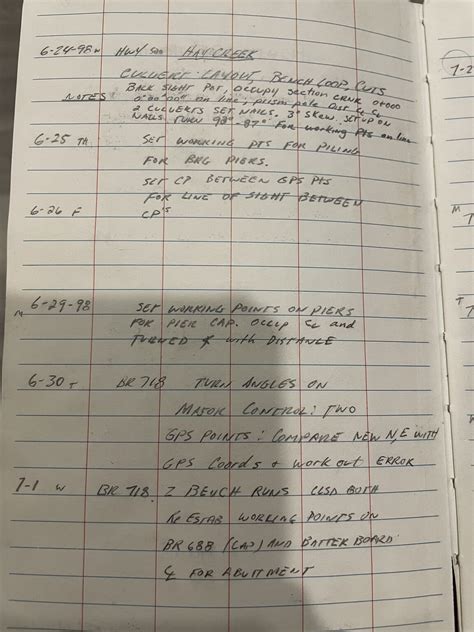 6-24-98 W HWY 520 HAY CREEK
CULVERT LAYOUT, BENCH LOOP, CUTS
BACK SIGHT POT, OCCUPY SECTION CRNR
NOTES 0°00'00" on line, prism pole Dist & CL
2 CULVERTS SET NAILS. 3° SKEW. SET UP ON
NAILS. TURN 93°-87° For working Pts on line
6-25 TH SET WORKING PTS FOR PILING
FOR BRG PIERS.
SET CP BETWEEN GPS PTS
FOR LINE OF SIGHT BETWEEN
6-26 F CP'S
M 6-29-98 SET WORKING POINTS ON PIERS
FOR PIER CAP. OCCUP CL and
TURNED ∡ with DISTANCE
6-30 T BR 718 TURN ANGLES ON
MAJOR CONTROL: TWO
GPS POINTS: COMPARE NEW N,E WITH
GPS COORDS & work out ERROR
7-1 W BR 718. 2 BENCH RUNS CLSD BOTH
Re ESTAB WORKING POINTS ON
BR 688 (CAP) AND BATTER BOARD
CL FOR ABUTTMENT
7-2
M
T
T